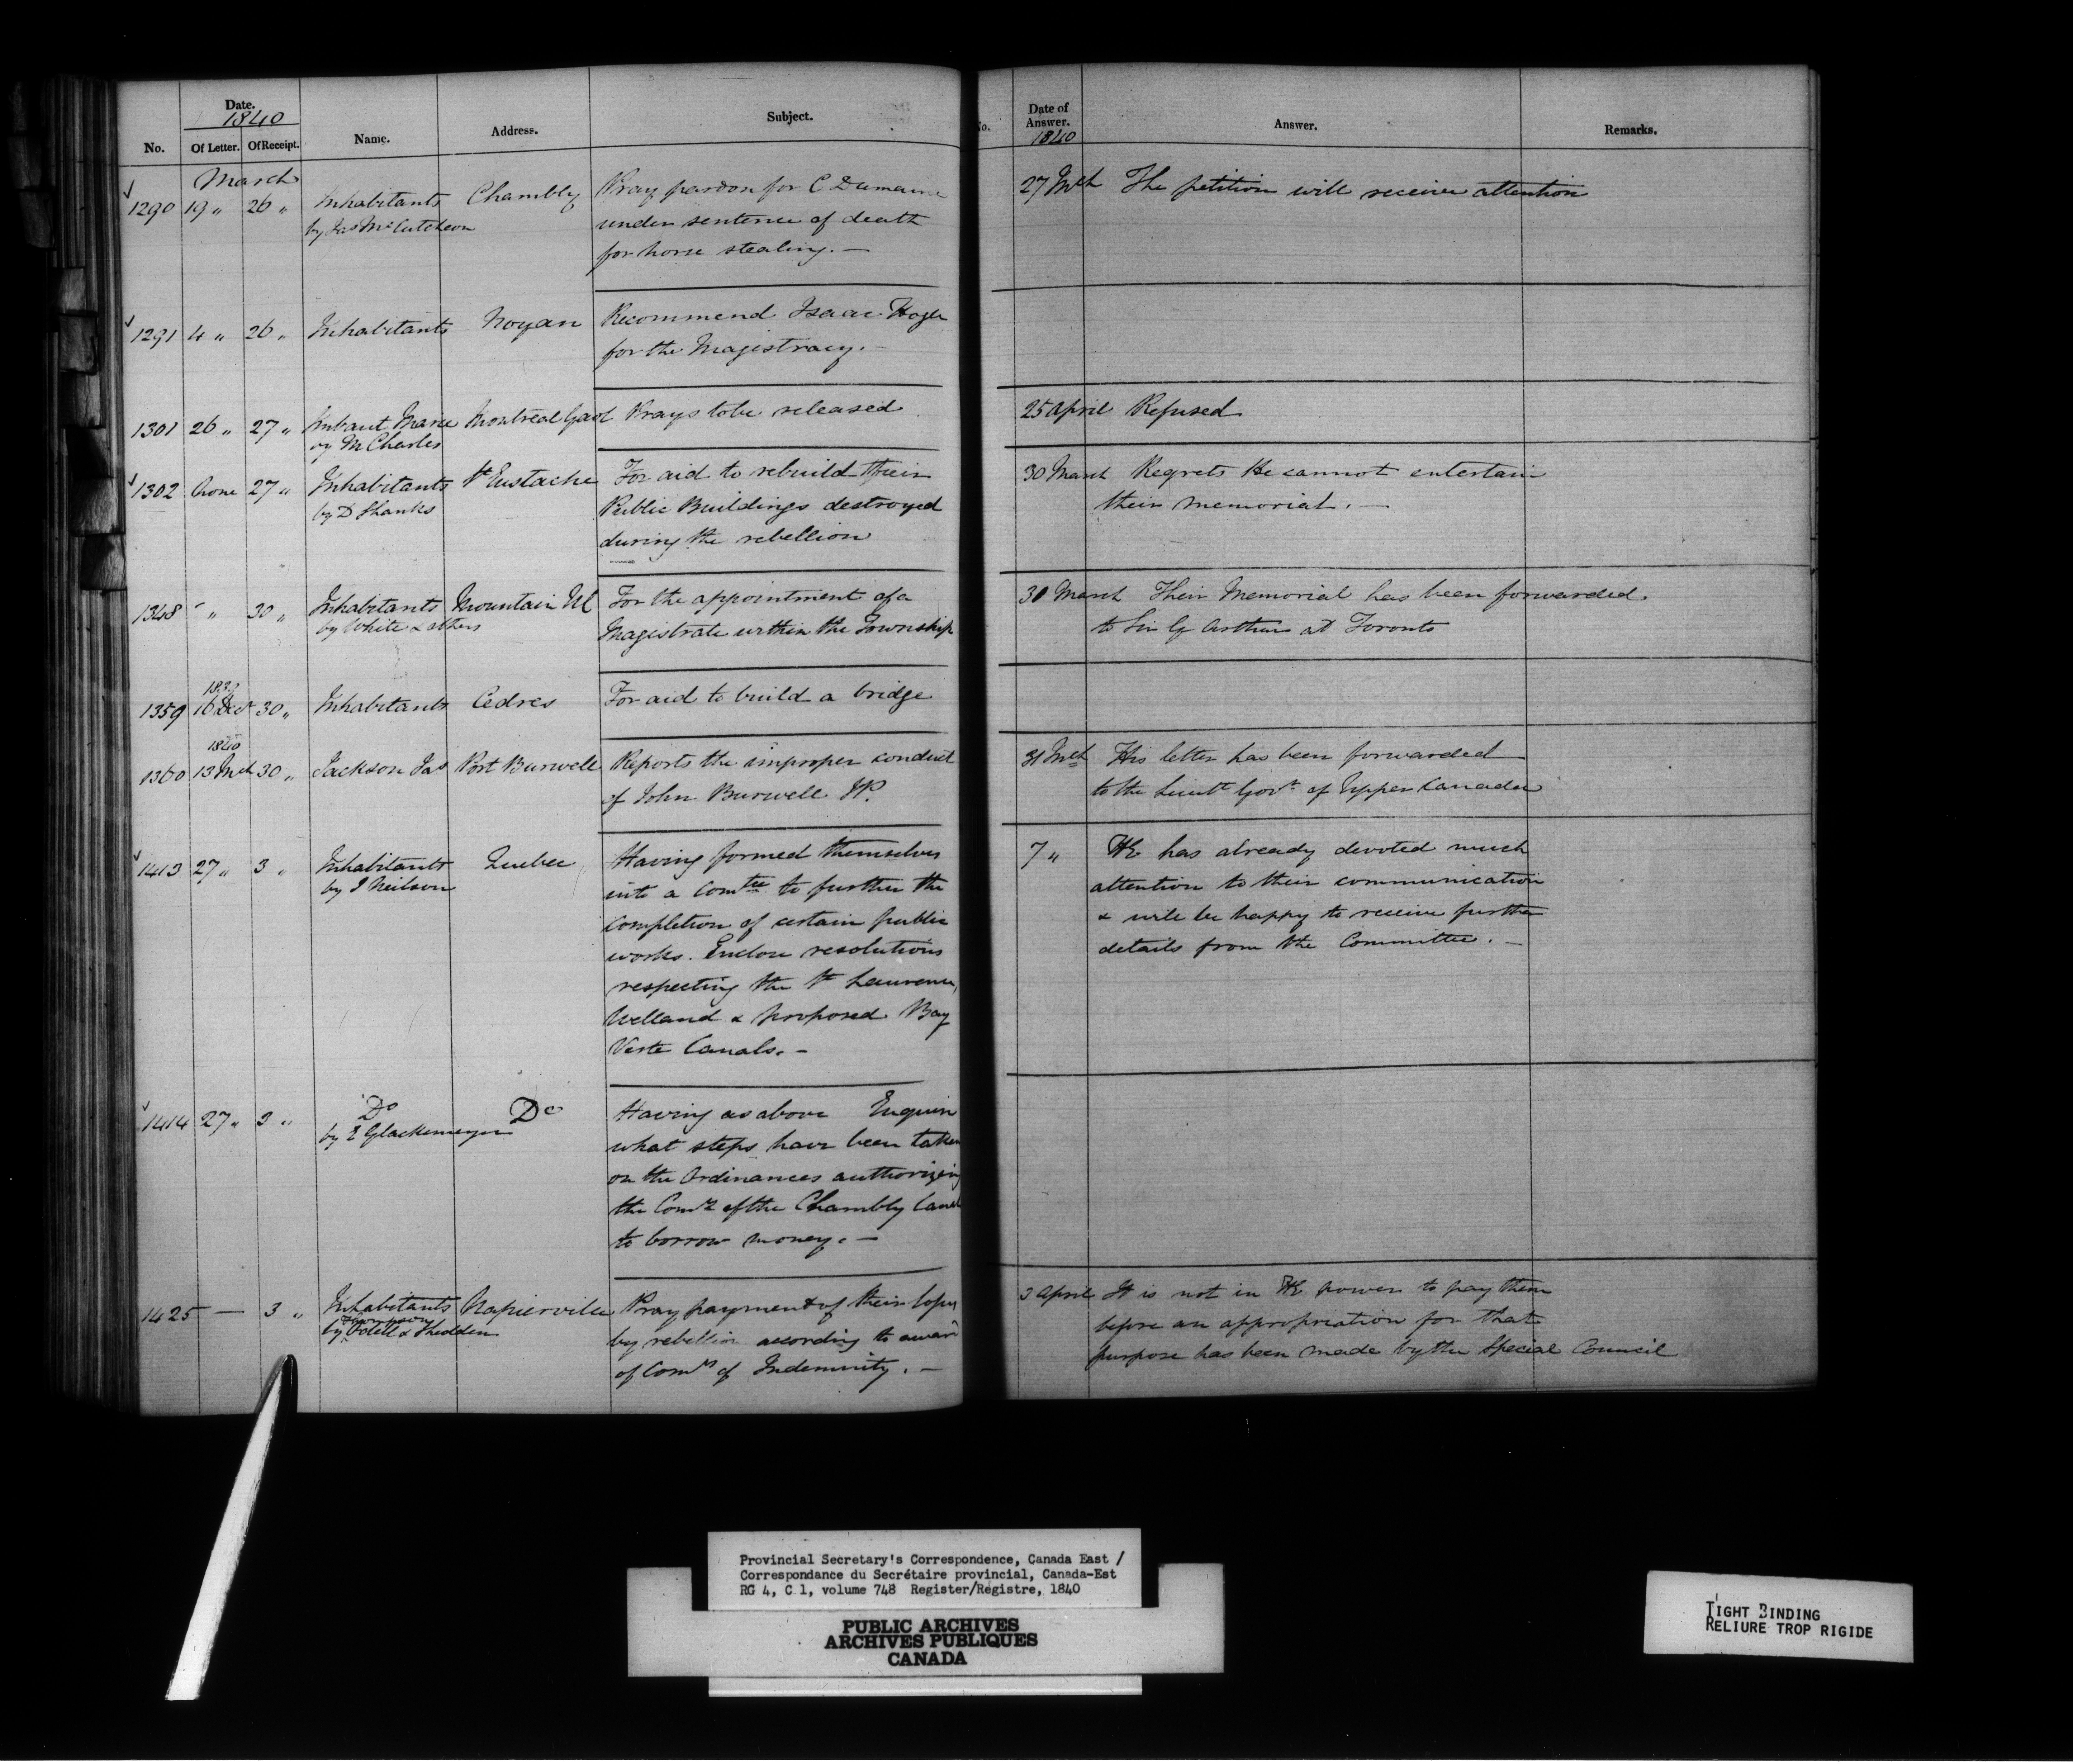 Date.
1840
No. Of Letter. Of Receipt. Name. Address. Subject.
March
1290 19 " 26 " Inhabitants Chambly Pray pardon for C Dumaine
by Jas McCutcheon under sentence of death
for horse stealing. —
1291 4 " 26 " Inhabitants Noyan Recommend Isaac Hogle
for the Magistracy. —
1301 26 " 27 " Imbaut Marie Montreal Gaol Prays to be released
by M Charles
1302 None 27 " Inhabitants St Eustache For aid to rebuild their
by D Shanks Public Buildings destroyed
during the rebellion
1348 - " 30 " Inhabitants Mountain For the appointment of a
by White & others Magistrate within the Township
1359 16 Dec 30 " Inhabitants Cedres For aid to build a bridge
1840
1360 13 Mch 30 " Jackson Jas Port Burwell Reports the improper conduct
of John Burwell JP.
1413 27 " 3 " Inhabitants Quebec Having formed themselves
by J Neilson into a Comtee to further the
completion of certain public
works. Enclose resolutions
respecting the St Laurence,
Welland & proposed Bay
Verte Canals. —
1414 27 " 3 " Do Do Having as above Enquire
by E Glackemeyer what steps have been taken
on the Ordinances authorizing
the Comrs of the Chambly Canal
to borrow money. —
1425 — 3 " Inhabitants Napierville Pray payment of their losses
by Odell & Shedden by rebellion according to award
of Comrs of Indemnity. —
No. Date of
Answer.
1840
Answer. Remarks.
27 Mch The petition will receive attention
25 April Refused
30 March Regrets He cannot entertain
their memorial. —
30 March Their Memorial has been forwarded
to Sir G Arthur at Toronto
31 Mch His letter has been forwarded
to the Lieutt Govr of Upper Canada
7 " HE has already devoted much
attention to their communication
& will be happy to receive further
details from the Committee. —
3 April It is not in HE power to pay them
before an appropriation for that
purpose has been made by the Special Council
Provincial Secretary's Correspondence, Canada East /
Correspondance du Secrétaire provincial, Canada-Est
RG 4, C 1, volume 748 Register/Registre, 1840
PUBLIC ARCHIVES
ARCHIVES PUBLIQUES
CANADA
TIGHT BINDING
RELIURE TROP RIGIDE